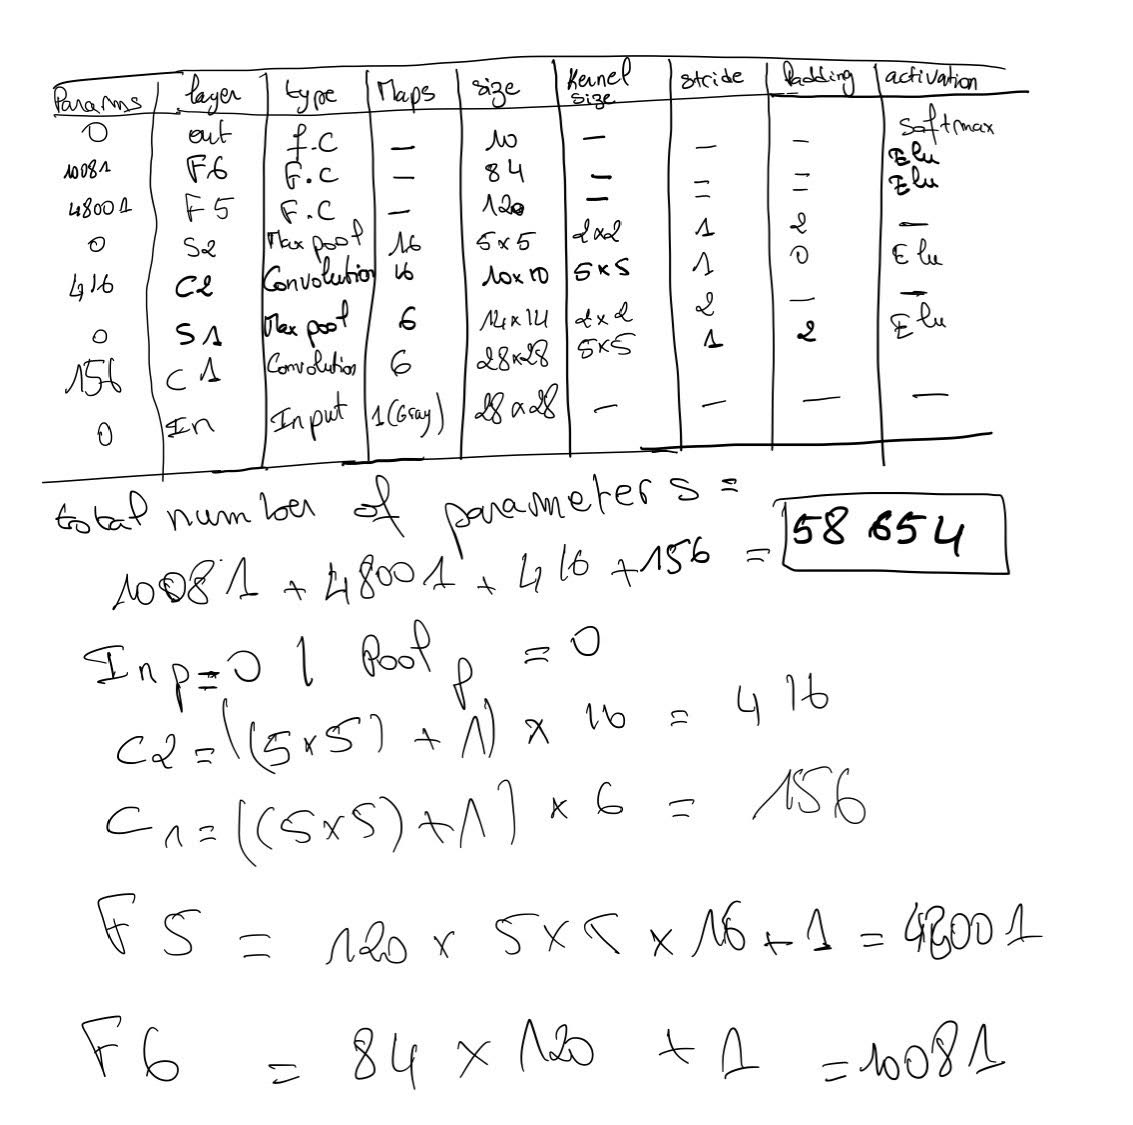 Params layer type Maps size Kernel size stride Padding activation
0 out f.C — 10 — — — Softmax
10081 F6 F.C — 84 — = = Elu
48001 F5 F.C — 120 — Elu
0 S2 Max pool 16 5x5 2x2 1 2 —
416 C2 Convolution 16 10x10 5x5 1 0 Elu
0 S1 Max pool 6 14x14 2x2 2 — —
156 C1 Convolution 6 28x28 5x5 1 2 Elu
0 In Input 1(Gray) 28x28 — — — —
total number of parameters =
10081 + 48001 + 416 + 156 = 58 654
Inp=0 | Pool p = 0
C2 = ((5x5) + 1) x 16 = 416
C1 = ((5x5) + 1) x 6 = 156
F5 = 120 x 5x5 x 16 + 1 = 48001
F6 = 84 x 120 + 1 = 10081